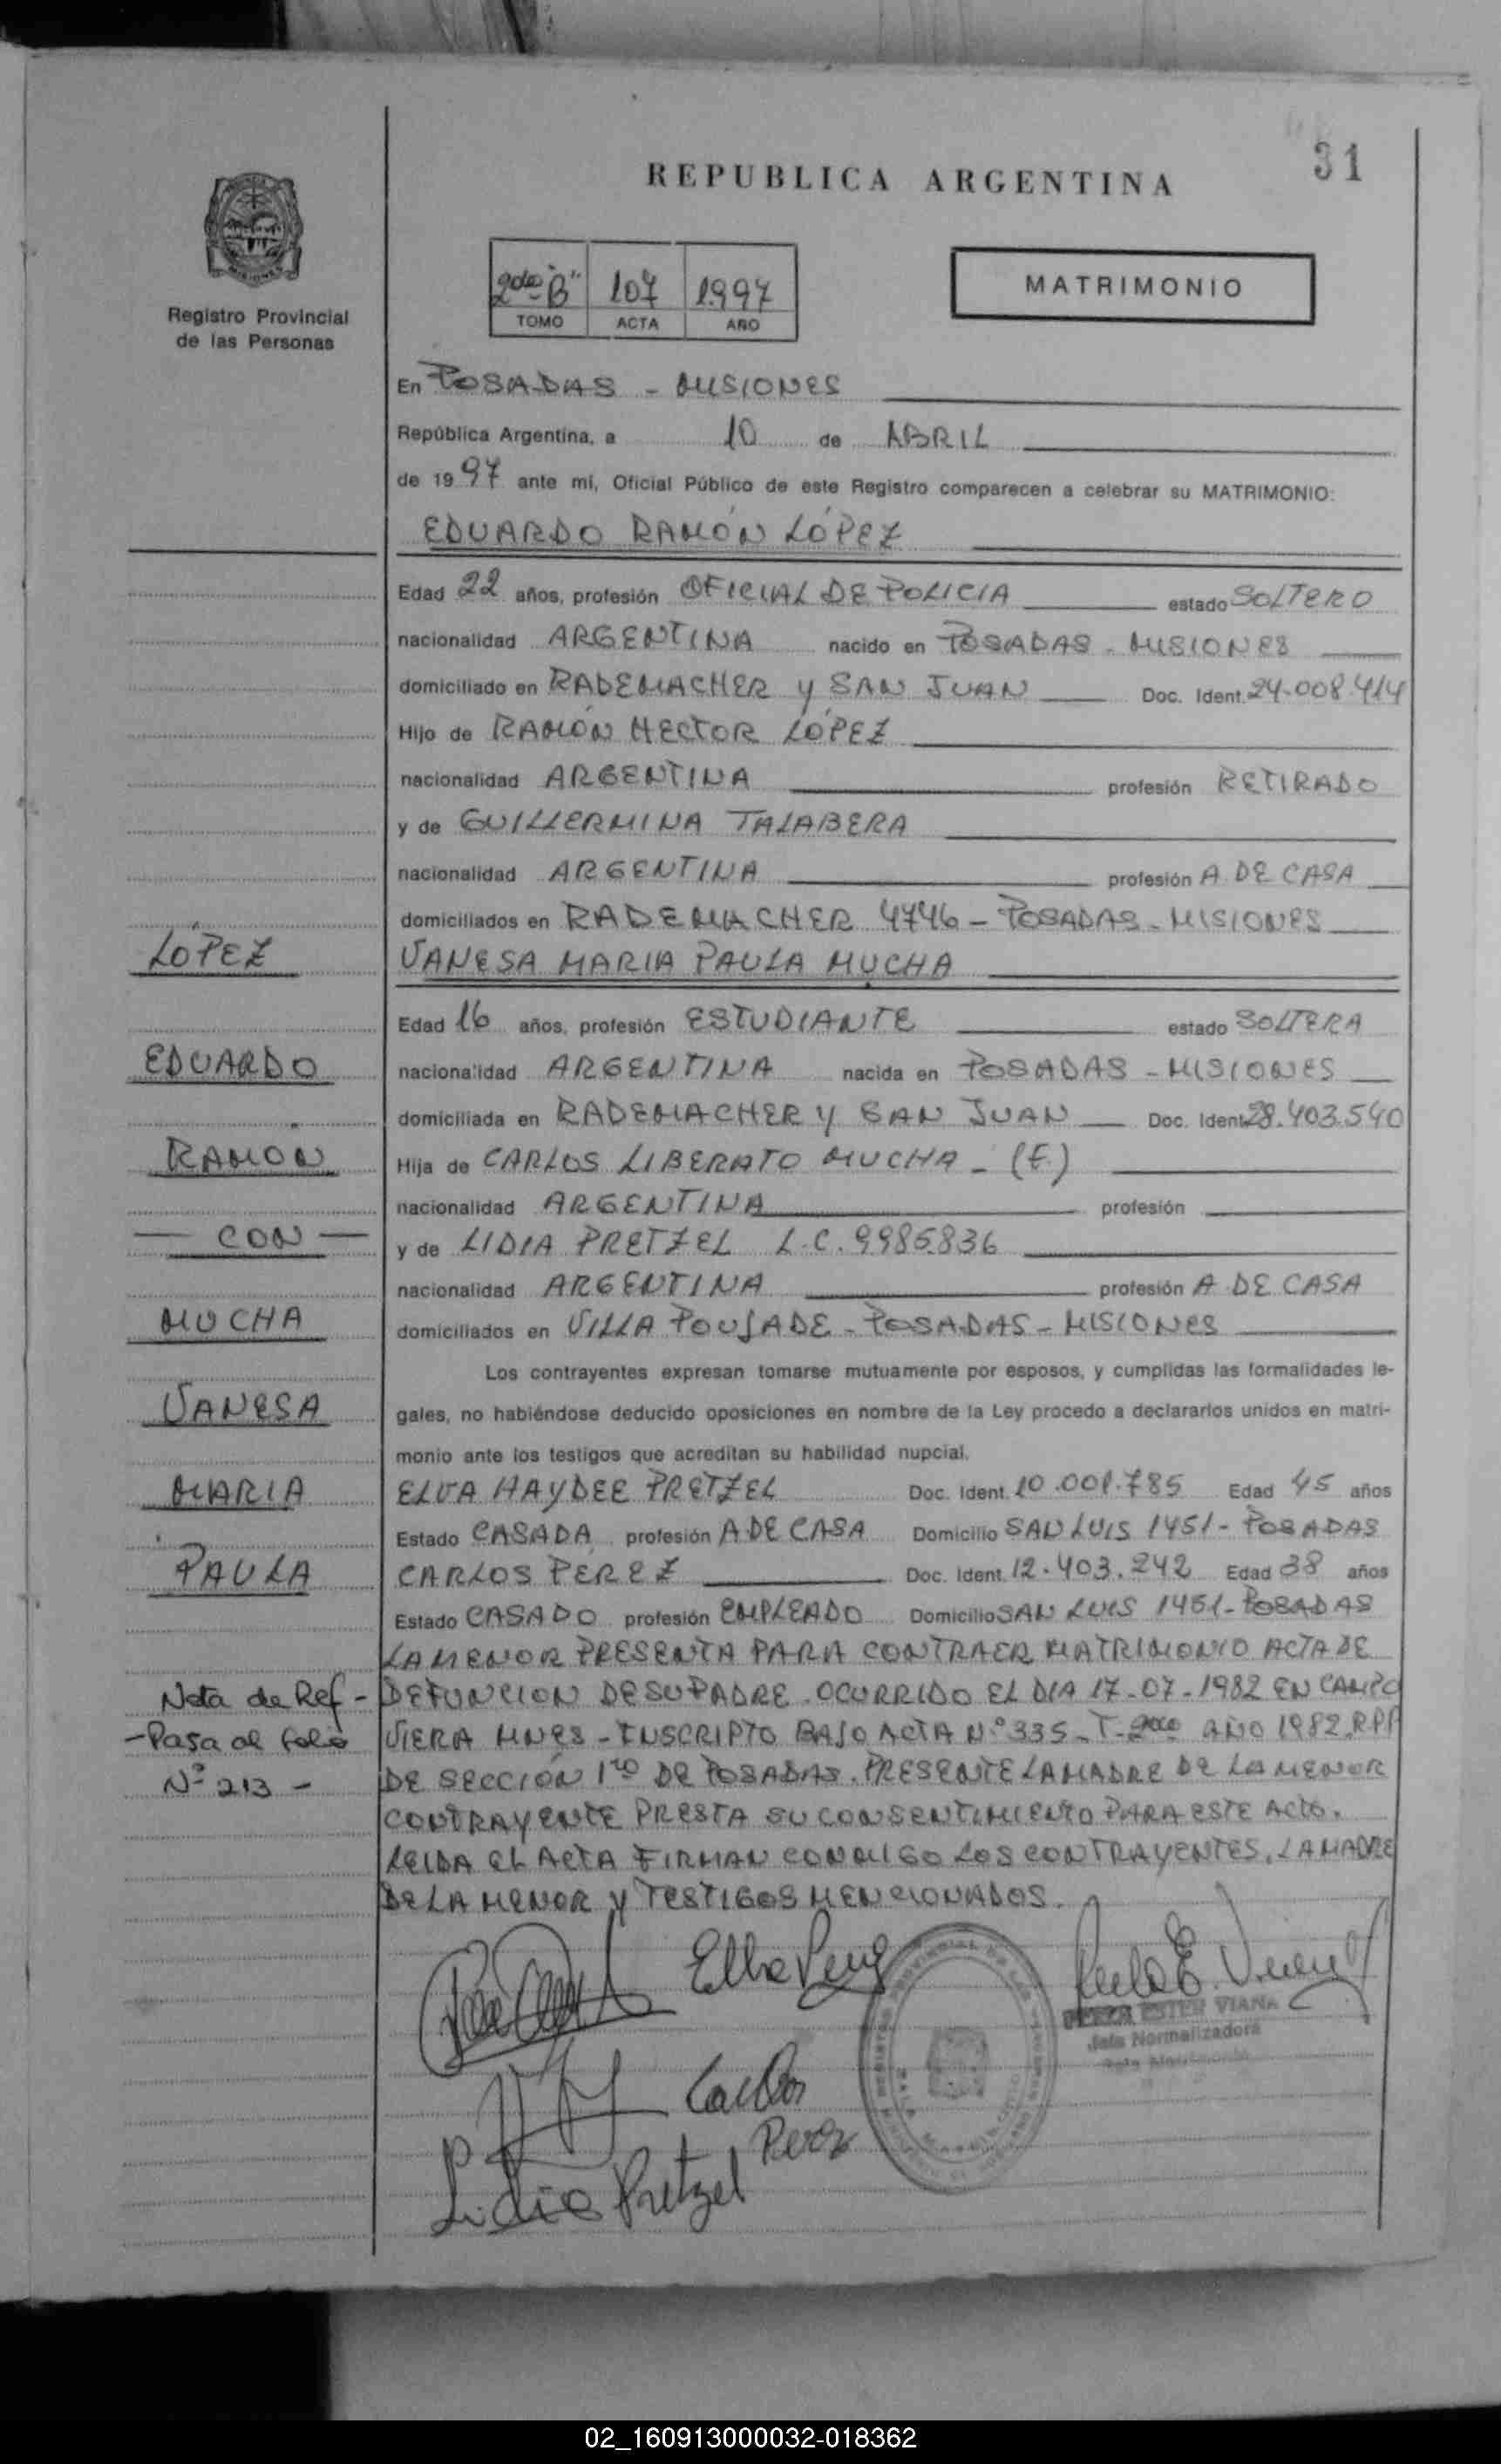 31
REPUBLICA ARGENTINA
2do "B" 107 1997
TOMO ACTA AÑO
MATRIMONIO
Registro Provincial
de las Personas
En POSADAS - MISIONES
República Argentina, a 10 de ABRIL
de 1997 ante mí, Oficial Público de este Registro comparecen a celebrar su MATRIMONIO:
EDUARDO RAMÓN LÓPEZ
Edad 22 años, profesión OFICIAL DE POLICIA estado SOLTERO
nacionalidad ARGENTINA nacido en POSADAS - MISIONES
domiciliado en RADEMACHER y SAN JUAN Doc. Ident. 24.008.414
Hijo de RAMÓN HECTOR LÓPEZ
nacionalidad ARGENTINA profesión RETIRADO
y de GUILLERMINA TALABERA
nacionalidad ARGENTINA profesión A. DE CASA
domiciliados en RADEMACHER 4746 - POSADAS - MISIONES
LÓPEZ
VANESA MARIA PAULA MUCHA
Edad 16 años, profesión ESTUDIANTE estado SOLTERA
EDUARDO
nacionalidad ARGENTINA nacida en POSADAS - MISIONES
domiciliada en RADEMACHER y SAN JUAN Doc. Ident. 28.403.540
RAMÓN
Hija de CARLOS LIBERATO MUCHA - (F.)
nacionalidad ARGENTINA profesión
— CON —
y de LIDIA PRETZEL L.C. 9985836
nacionalidad ARGENTINA profesión A. DE CASA
MUCHA
domiciliados en VILLA POUJADE - POSADAS - MISIONES
Los contrayentes expresan tomarse mutuamente por esposos, y cumplidas las formalidades le-
VANESA
gales, no habiéndose deducido oposiciones en nombre de la Ley procedo a declararlos unidos en matri-
monio ante los testigos que acreditan su habilidad nupcial.
MARIA
ELVA HAYDEE PRETZEL Doc. Ident. 10.001.785 Edad 45 años
Estado CASADA profesión A.DE CASA Domicilio SAN LUIS 1451 - POSADAS
PAULA
CARLOS PEREZ Doc. Ident. 12.403.242 Edad 38 años
Estado CASADO profesión EMPLEADO Domicilio SAN LUIS 1451 - POSADAS
LA MENOR PRESENTA PARA CONTRAER MATRIMONIO ACTA DE
DEFUNCION DE SU PADRE. OCURRIDO EL DIA 17-07-1982 EN CAMPO
VIERA MNES - INSCRIPTO BAJO ACTA N° 335 - T- AÑO 1982.RPP
DE SECCIÓN 1ro DE POSADAS. PRESENTE LA MADRE DE LA MENOR
CONTRAYENTE PRESTA SU CONSENTIMIENTO PARA ESTE ACTO.
LEIDA EL ACTA FIRMAN CONMIGO LOS CONTRAYENTES, LA MADRE
DE LA MENOR y TESTIGOS MENCIONADOS.
Nota de Ref -
- Pasa al folio
N° 213 -
Carlos
Perez
Lidia Pretzel
ESTER VIANA
Jefa Normalizadora
02_160913000032-018362